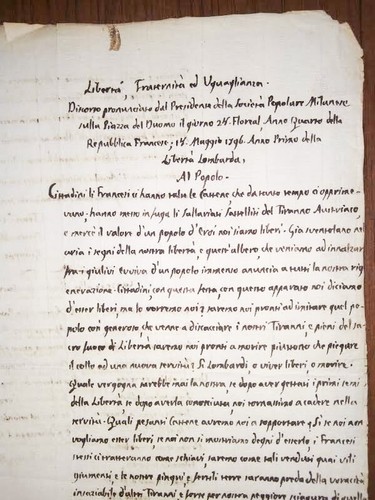 Libertà, Fraternità ed Uguaglianza.
Discorso pronunciato dal Presidente della Società Popolare Milanese
sulla Piazza del Duomo il giorno 2. Floreal, Anno Quarto della
Repubblica Francese, Maggio 1796. Anno Primo della
Libertà Lombarda,
Al Popolo.
Cittadini li Francesi ci hanno le Catene che da tempo ci opprime-
vano, hanno messo in fuga li Satelliti del Tiranno Austriaco,
e mercè il valore d'un popolo d'Eroi noi siamo liberi. Già sventolano nell'
aria i segni della nostra libertà e quest'albero, che veniamo ad innalzar
fra i giulivi evviva d'un popolo immenso anuncia a tutti la nostra rig-
enerazione. Cittadini, con questa festa, con questo apparato noi diciamo
d'esser liberi, ma lo vorremo noi? saremo noi pronti ad imitare quel po-
polo così generoso che venne a discacciare i nostri Tiranni, e pieni del sa-
cro fuoco di Libertà saremo noi pronti a morire piuttosto che piegare
il collo ad una nuova servitù? Sì Lombardi o viver liberi o morire.
Quale vergogna sarebbe mai la nostra se dopo aver gettati i primi semi
della Libertà, se dopo averla conosciuta noi tornassimo a cadere nella
servitù. Quali pesanti Catene avremo noi a sopportare? Se noi non
vogliamo esser liberi se noi non ci mostriamo degni d'esserlo, i Francesi
stessi ci tratteranno come schiavi, saremo come tali venduti quai vili
giumenti e le nostre pingui, e fertili terre saranno preda della voracità
insaziabile d'altri Tiranni e forse per nostra maggiore sciagura di quella